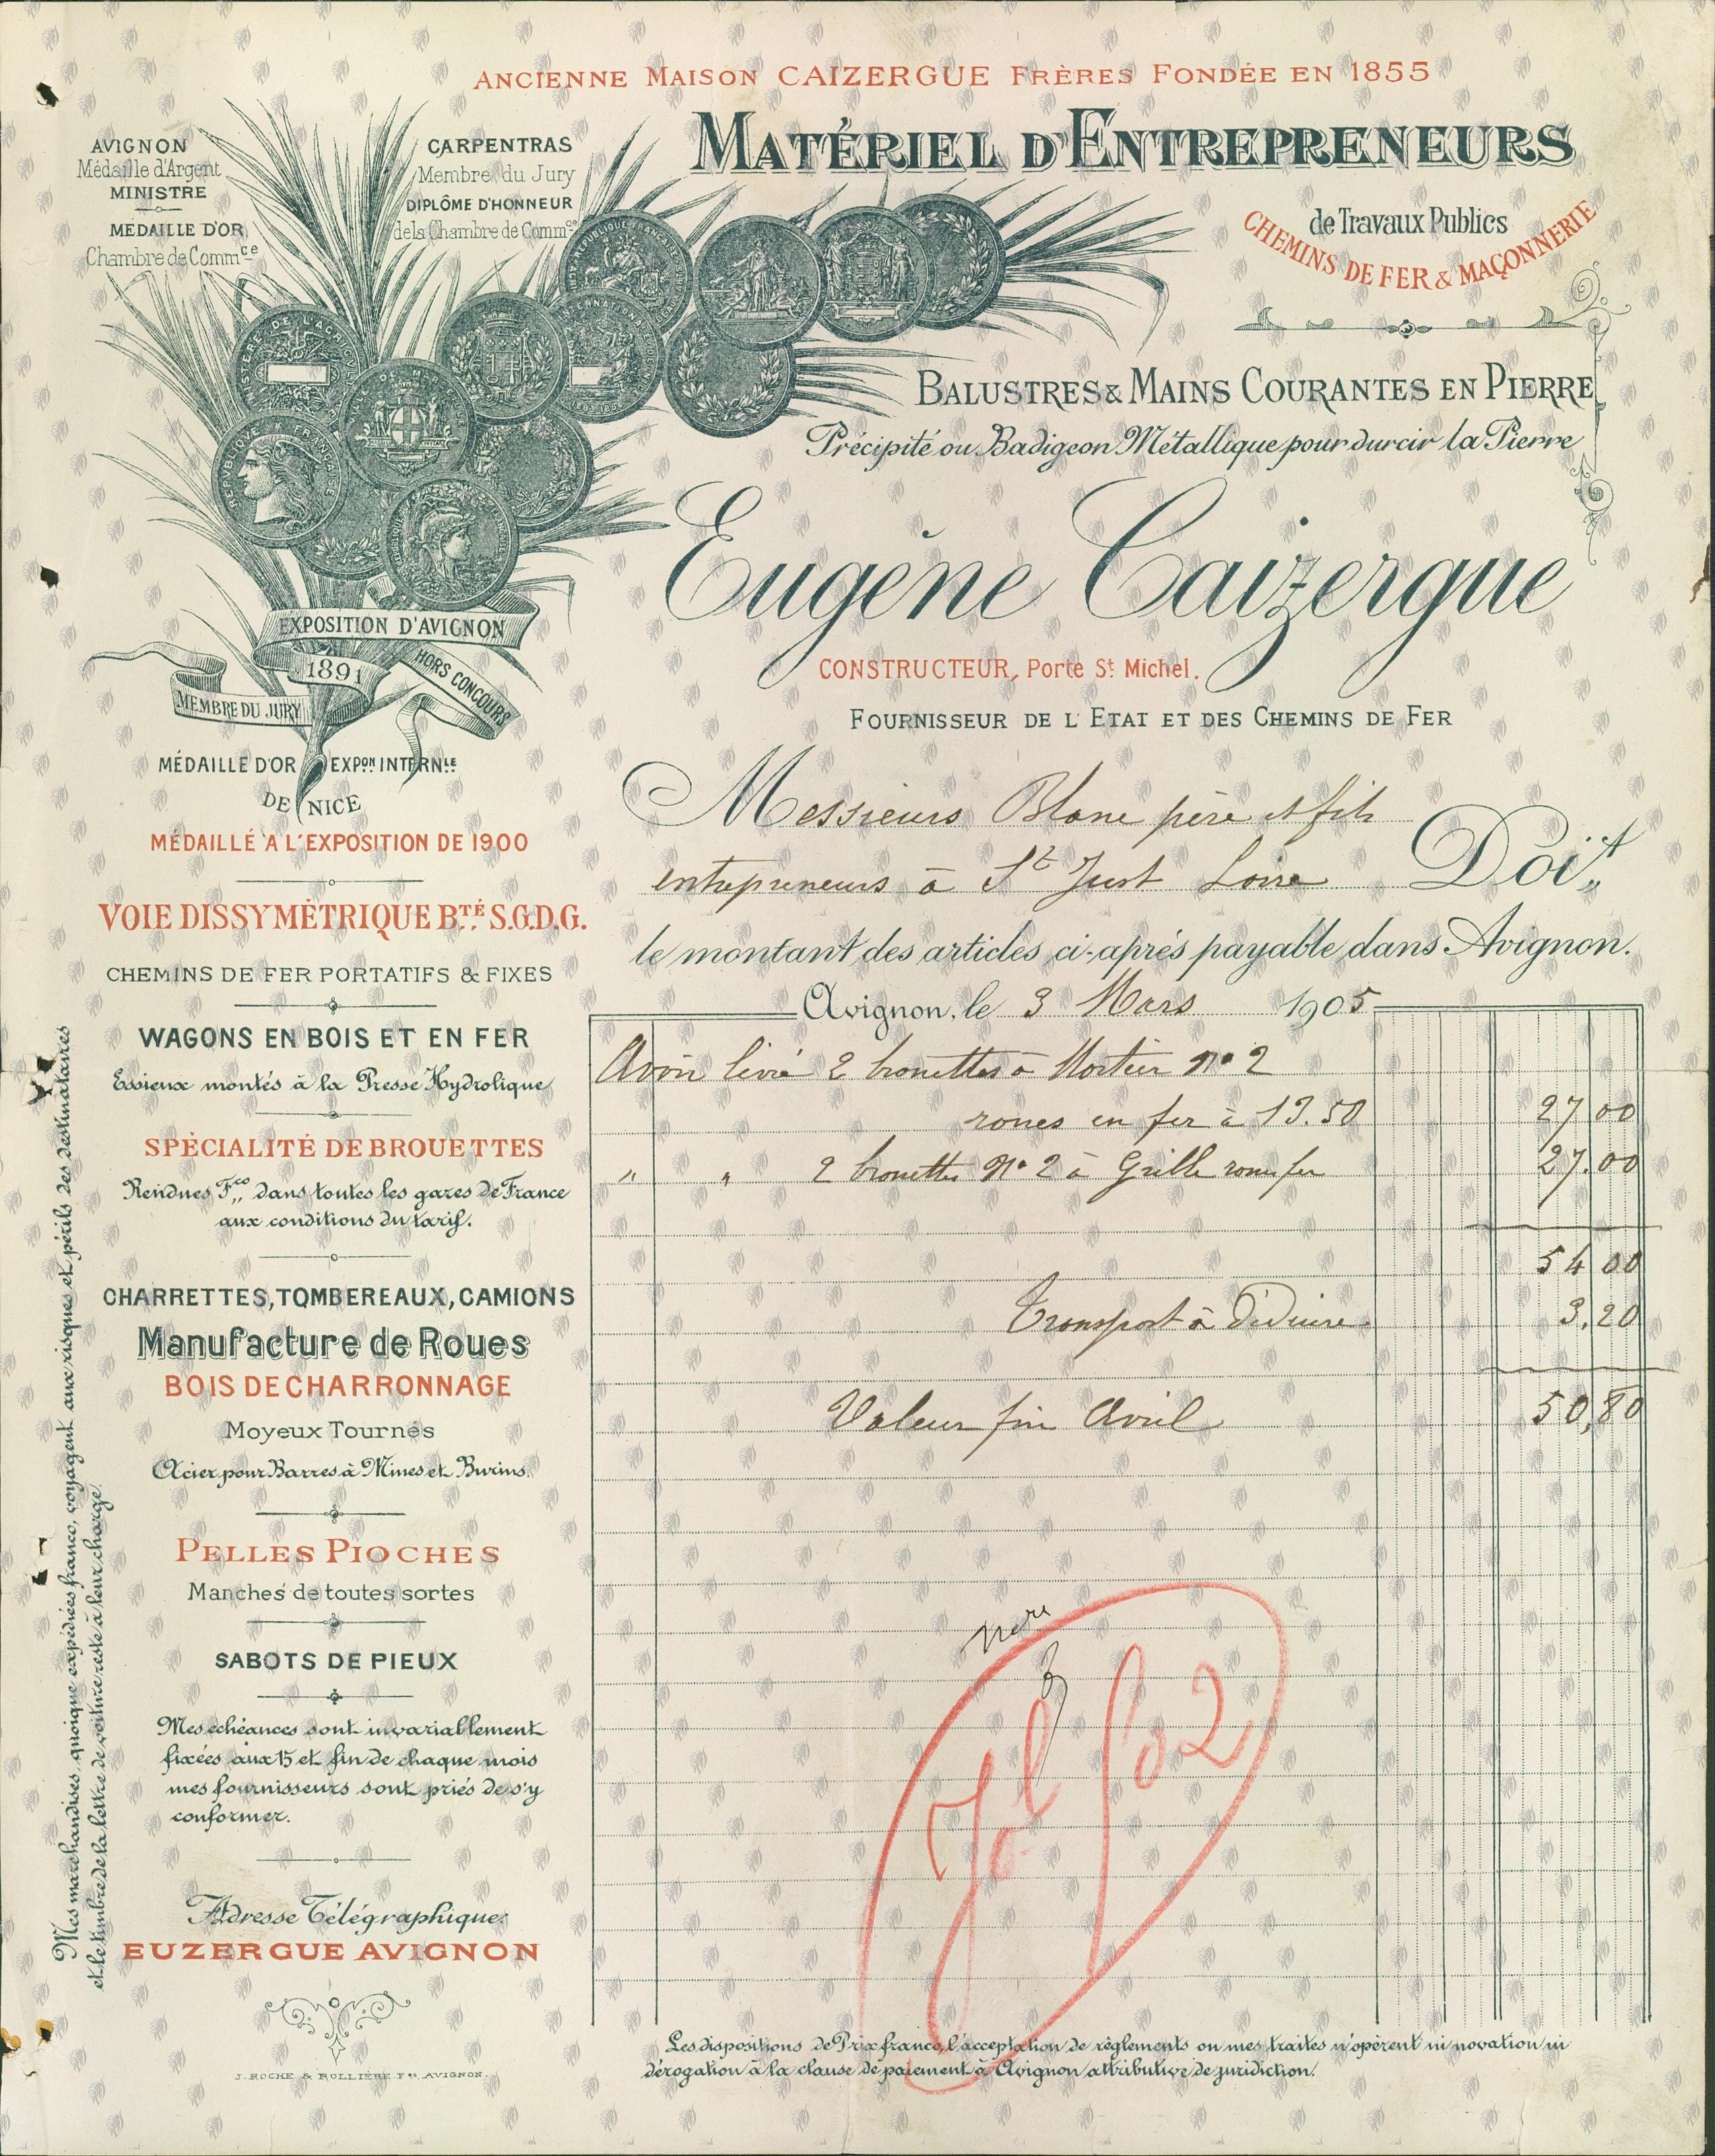 ANCIENNE MAISON CAIZERGUE FRÈRES FONDÉE EN 1855
MATÉRIEL D'ENTREPRENEURS
de Travaux Publics
CHEMINS DE FER & MAÇONNERIE
BALUSTRES & MAINS COURANTES EN PIERRE
Précipité ou Badigeon Métallique pour durcir la Pierre
Eugène Caizergue
CONSTRUCTEUR, Porte St Michel.
FOURNISSEUR DE L'ETAT ET DES CHEMINS DE FER
AVIGNON
Médaille d'Argent
MINISTRE
MÉDAILLE D'OR
Chambre de Commce
CARPENTRAS
Membre du Jury
DIPLÔME D'HONNEUR
de la Chambre de Commce
REPVBLIQVE FRANÇAISE
EXPOSITION D'AVIGNON
1891
HORS CONCOURS
MEMBRE DU JURY
MÉDAILLE D'OR EXPON INTERNLE
DE NICE
MÉDAILLÉ A L'EXPOSITION DE 1900
VOIE DISSYMÉTRIQUE BTÉ S.G.D.G.
CHEMINS DE FER PORTATIFS & FIXES
WAGONS EN BOIS ET EN FER
Essieux montés à la Presse Hydrolique
SPÉCIALITÉ DE BROUETTES
Rendues Fco dans toutes les gares de France
aux conditions du tarif.
CHARRETTES, TOMBEREAUX, CAMIONS
Manufacture de Roues
BOIS DE CHARRONNAGE
Moyeux Tournés
Acier pour Barres à Mines et Burins.
PELLES PIOCHES
Manches de toutes sortes
SABOTS DE PIEUX
Mes echéances sont invariablement
fixées aux 15 et fin de chaque mois
mes fournisseurs sont priés de s'y
conformer.
Adresse Télégraphique:
EUZERGUE AVIGNON
J. ROCHE & RULLIÈRE Fes AVIGNON.
Mes marchandises, quoique expédiées franco, voyagent aux risques et périls des destinataires
et le timbre de la lettre de voiture reste à leur charge.
Messieurs Blanc père et fils
entrepreneurs à St Just Loire Doit
le montant des articles ci-après payable dans Avignon.
Avignon, le 3 Mars 1905
Avoir livré 2 brouettes à Mortier No 2
roues en fer à 13.50 27,00
" " 2 brouettes No 2 à Grille roue fer 27.00
54 00
Transport à Déduire 3.20
Valeur fin Avril 50,80
Les dispositions de Prix franco, l'acceptation de règlements ou mes traites n'opèrent ni novation ni
dérogation à la clause de paiement à Avignon attributive de juridiction.